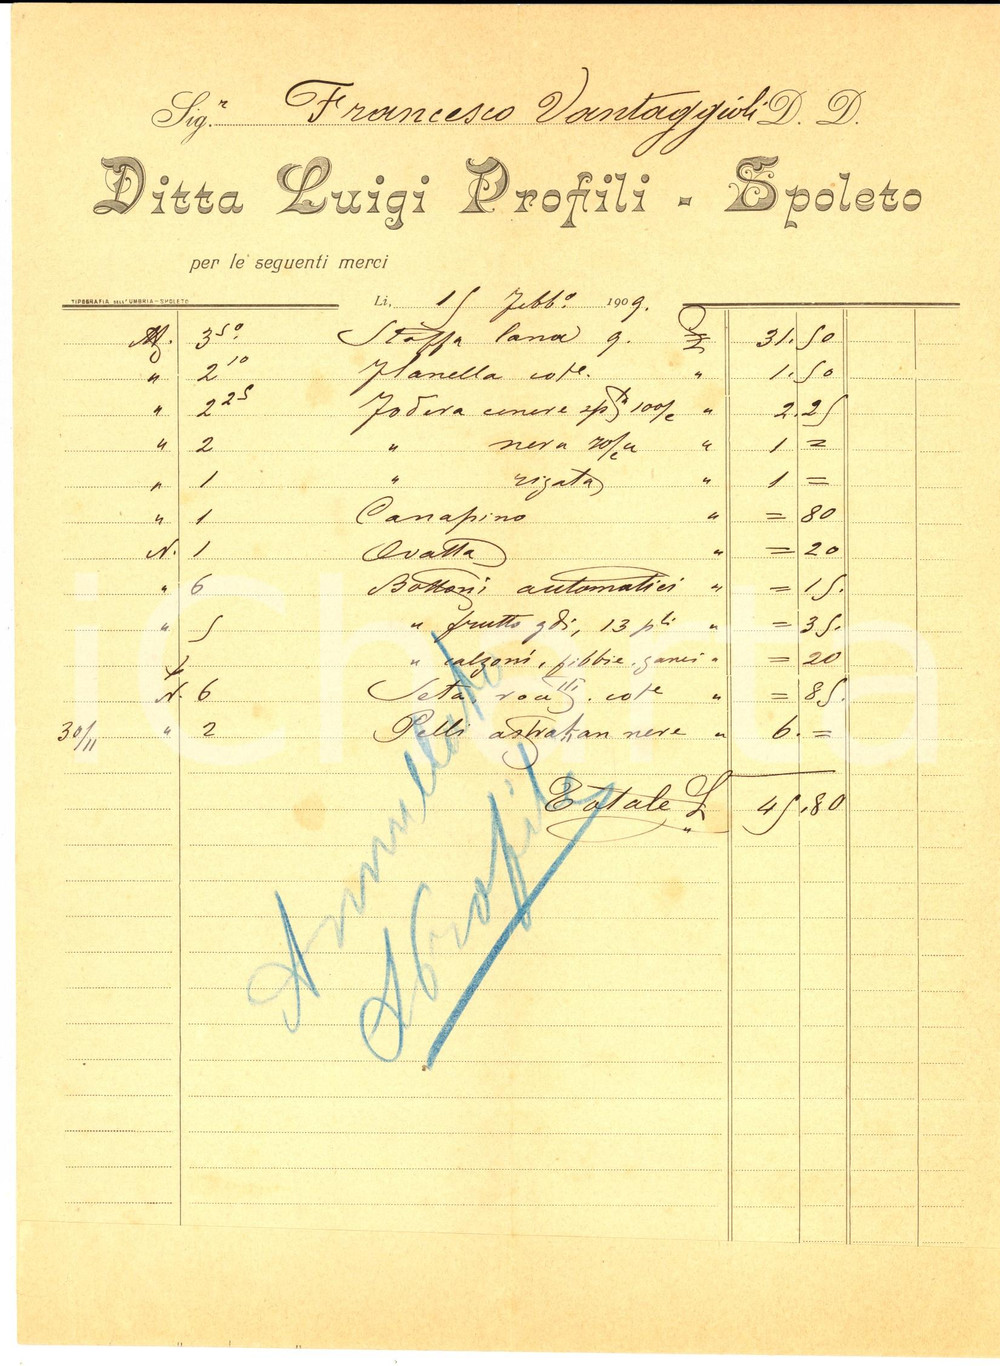 Sig.r Francesco Vantaggioli D. D.
Ditta Luigi Profili - Spoleto
per le seguenti merci
TIPOGRAFIA DELL'UMBRIA - SPOLETO
Li, 15 Febb.o 1909.
M. 3 50 Stoffa lana g. £ 31.50
" 2 10 Flanella cote. " 1.50
" 2 25 Fodera cenere 100/c " 2.25
" 2 " nera 70/c " 1 =
" 1 " rigata " 1 =
" 1 Canapino " = 80
N. 1 Ovatta " = 20
" 6 Bottoni automatici " = 15.
" 5 " frutto gdi, 13 pli " = 35.
" calzoni, fibbie, ganci " = 20
N. 6 Seta cote " = 85.
30/11 " 2 Pelli astrakan nere " 6. =
Totale £ 45.80
Annullato
Profili
iCharta